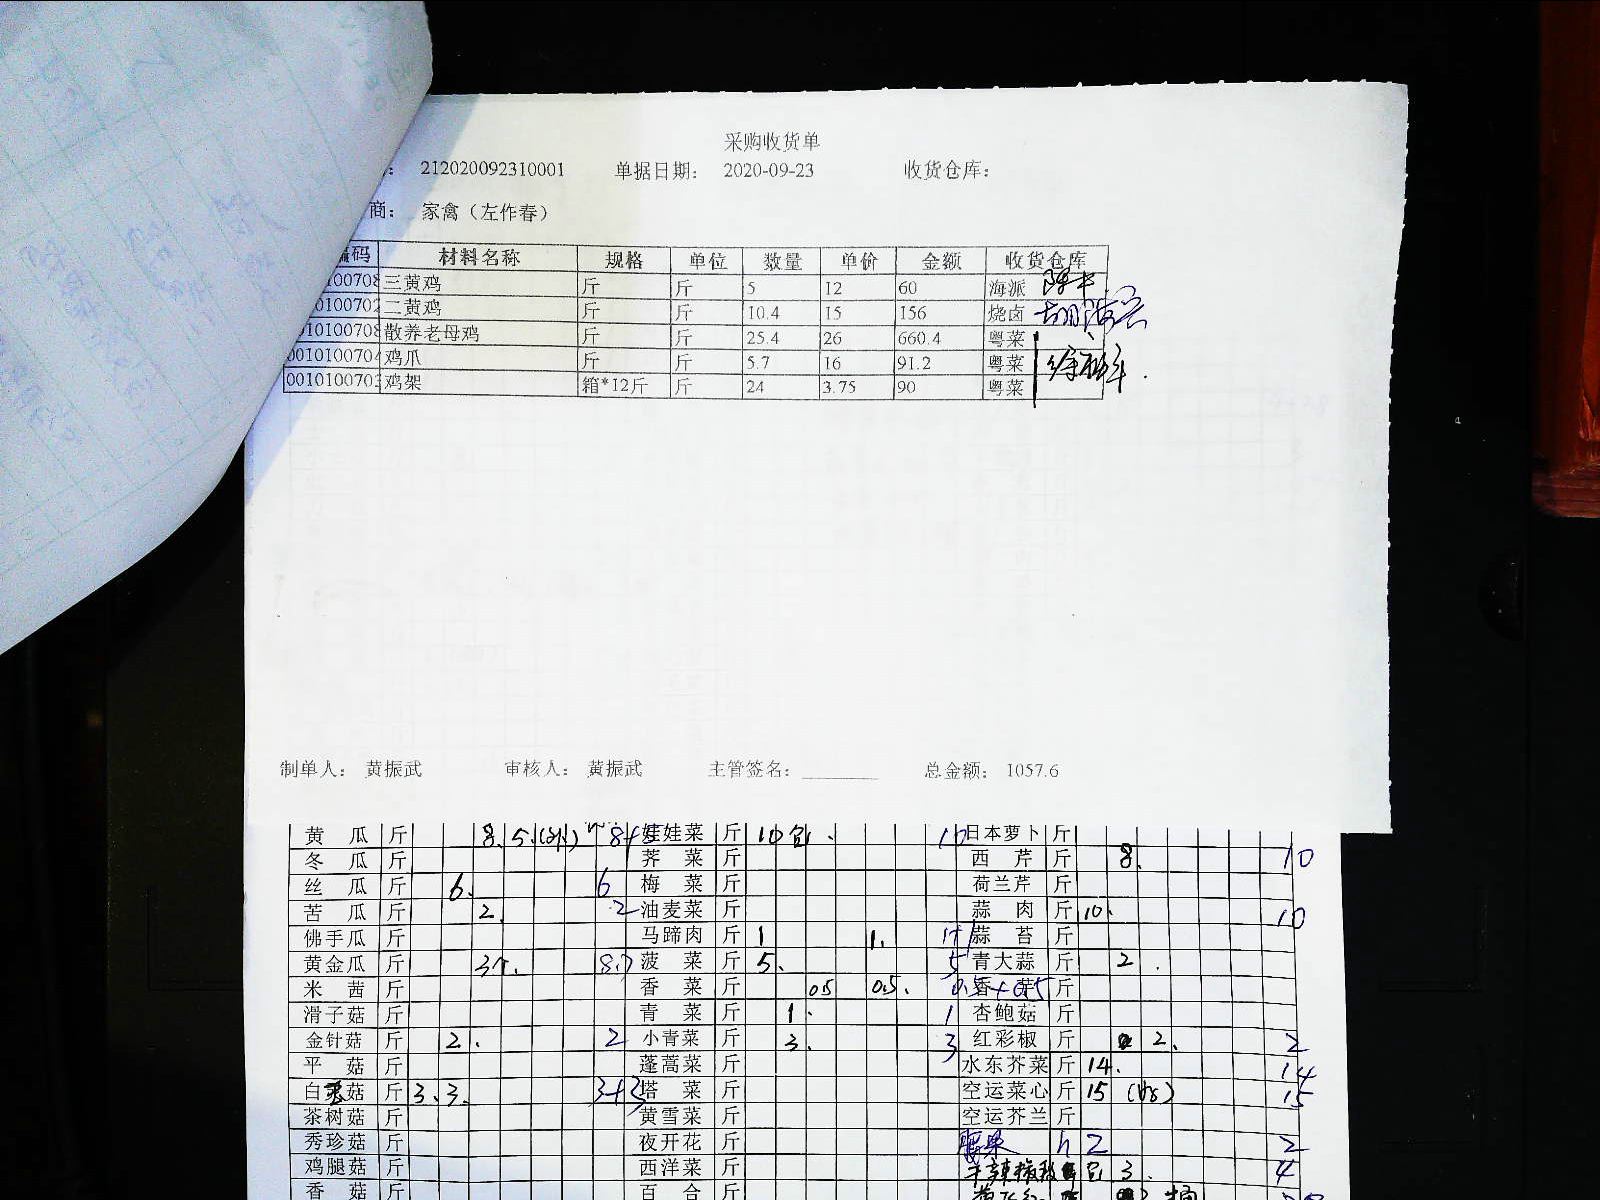 采购收货单
: 212020092310001 单据日期: 2020-09-23 收货仓库:
商: 家禽（左作春）
编码 材料名称 规格 单位 数量 单价 金额 收货仓库
100708 三黄鸡 斤 斤 5 12 60 海派
0100702 二黄鸡 斤 斤 10.4 15 156 烧卤
10100708 散养老母鸡 斤 斤 25.4 26 660.4 粤菜
0010100704 鸡爪 斤 斤 5.7 16 91.2 粤菜
0010100703 鸡架 箱*12斤 斤 24 3.75 90 粤菜
制单人: 黄振武 审核人: 黄振武 主管签名: 总金额: 1057.6
黄瓜 斤 8. 5. 娃娃菜 斤 10包. 10 日本萝卜 斤
冬瓜 斤 荠菜 斤 西芹 斤 8. 10
丝瓜 斤 6. 6 梅菜 斤 荷兰芹 斤
苦瓜 斤 2. 2 油麦菜 斤 蒜肉 斤 10. 10
佛手瓜 斤 马蹄肉 斤 1 1. 蒜苔 斤
黄金瓜 斤 3个. 菠菜 斤 5. 5 青大蒜 斤 2.
米茜 斤 香菜 斤 0.5 0.5. 斤
滑子菇 斤 青菜 斤 1. 1 杏鲍菇 斤
金针菇 斤 2. 2 小青菜 斤 3. 3 红彩椒 斤 2. 2
平菇 斤 蓬蒿菜 斤 水东芥菜 斤 14. 14
白玉菇 斤 3. 3. 3+3 塔菜 斤 空运菜心 斤 15 15
茶树菇 斤 黄雪菜 斤 空运芥兰 斤
秀珍菇 斤 夜开花 斤 2 2
鸡腿菇 斤 西洋菜 斤 3. 4
香菇 斤 百合 斤